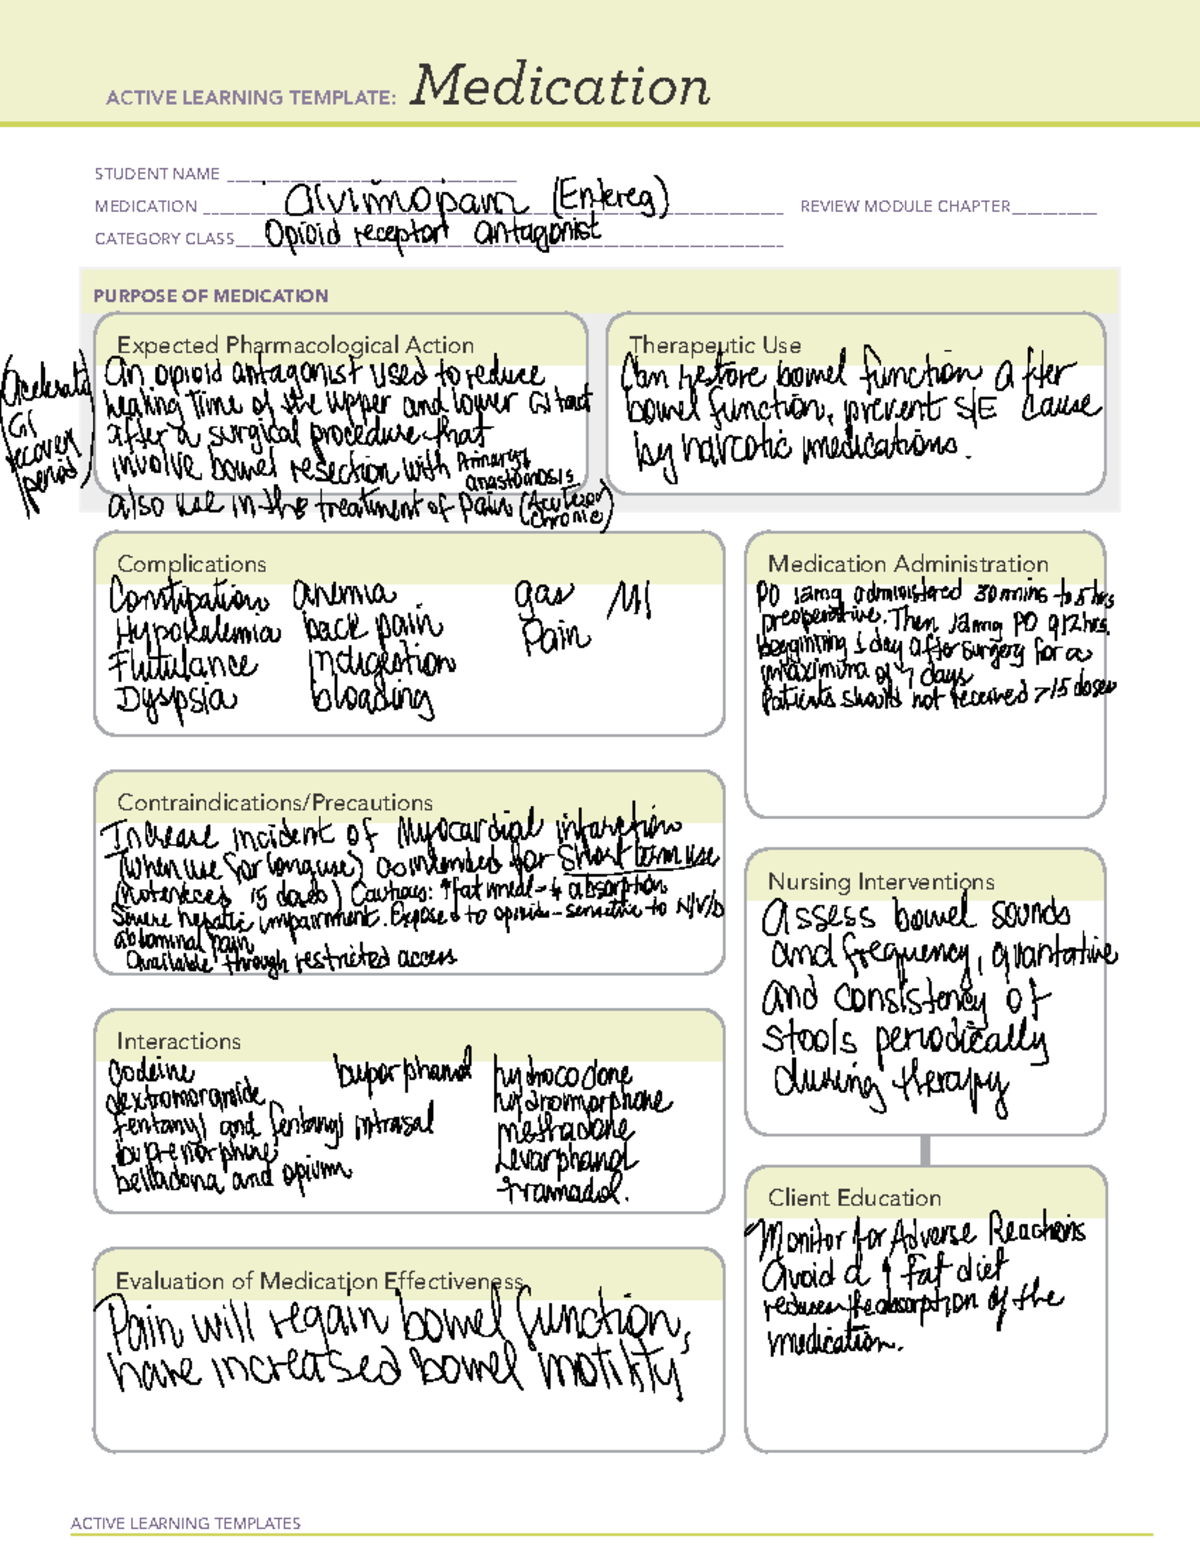 ACTIVE LEARNING TEMPLATE: Medication
STUDENT NAME
MEDICATION Alvimopam (Entereg) REVIEW MODULE CHAPTER
CATEGORY CLASS Opioid receptor antagonist
PURPOSE OF MEDICATION
Expected Pharmacological Action
An opioid antagonist used to reduce
healing time of the upper and lower GI tract
after a surgical procedure that
involve bowel resection with primary
anastomosis
also use in the treatment of pain (Acute or
chronic)
GI
recovery
period)
Therapeutic Use
Can restore bowel function after
bowel function, prevent S/E cause
by narcotic medications.
Complications
Constipation anemia gas MI
Hypokalemia back pain Pain
Flutulance indigestion
Dyspsia bloading
Medication Administration
PO 12mg administered 30mins to 5hrs
preoperative. Then 12mg PO q12hrs.
beggining 1 day after surgery for a
maximum of 7 days
Patients should not received >15 doses
Contraindications/Precautions
Increase incident of Myocardial infarction
(when use for long use) as intended for short term use
15 doses) Cautious: ↑fat meal-↓ absorption
Severe hepatic impairment. Exposed to opioids-sensitive to N/V/D
abdominal pain
Available through restricted access
Nursing Interventions
Assess bowel sounds
and frequency, quantative
and consistency of
stools periodically
during therapy
Interactions
codeine buporphanol hydrocodone
dextromoramide hydromorphone
fentanyl and fentanyl intrasal methadone
buprenorphine Levarphanol
belladona and opium tramadol.
Client Education
Monitor for Adverse Reactions
avoid a ↑ fat diet
of the
medication.
Evaluation of Medication Effectiveness
Pain will regain bowel function,
have increased bowel motility
ACTIVE LEARNING TEMPLATES